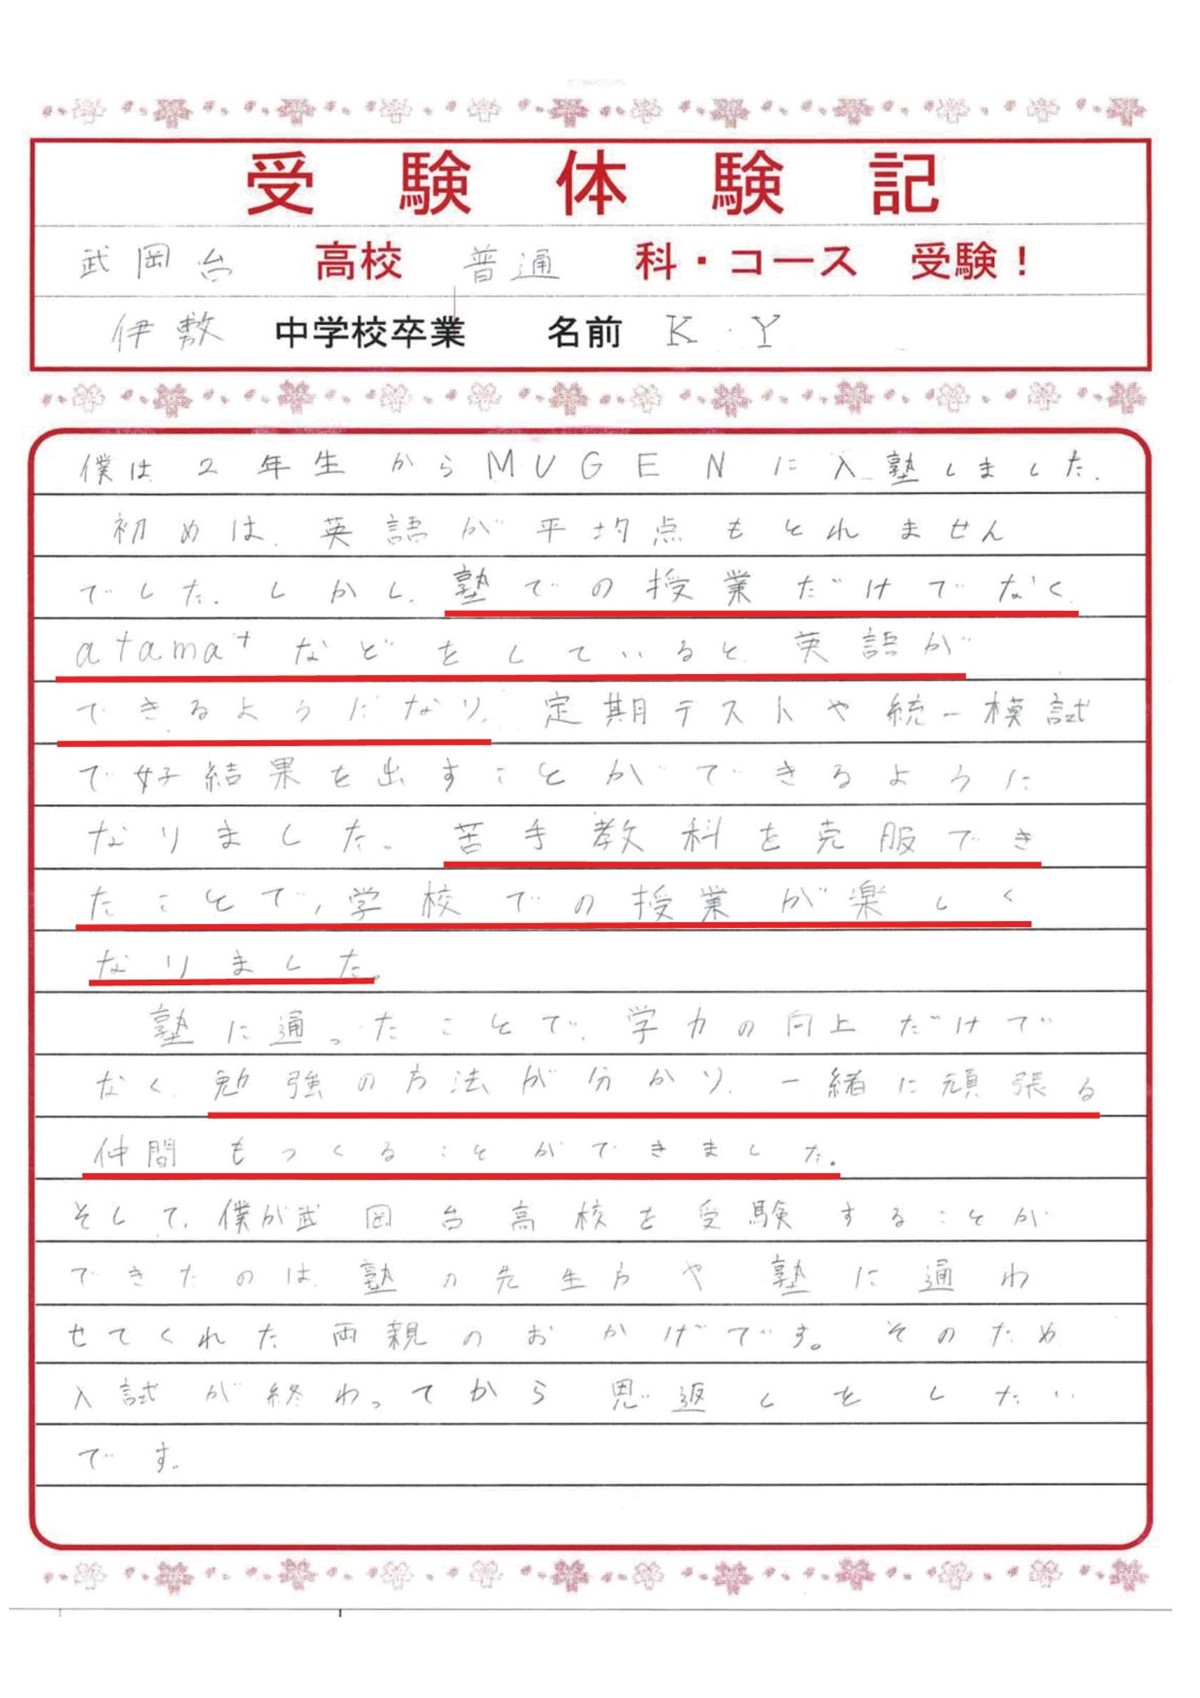 受験体験記
武岡台 高校 普通 科・コース 受験！
伊敷 中学校卒業 名前 K・Y
僕は2年生からMUGENに入塾しました。
初めは、英語が平均点もとれません
でした。しかし、塾での授業だけでなく
atama+などをしていると、英語が
できるようになり、定期テストや統一模試
で好結果を出すことができるように
なりました。苦手教科を克服でき
たことで、学校での授業が楽しく
なりました。
塾に通ったことで、学力の向上だけで
なく、勉強の方法が分かり、一緒に頑張る
仲間もつくることができました。
そして、僕が武岡台高校を受験することが
できたのは、塾の先生方や塾に通わ
せてくれた両親のおかげです。そのため
入試が終わってから恩返しをしたい
です。